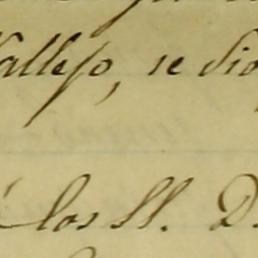 Vallejo, se dio
los SS. D.